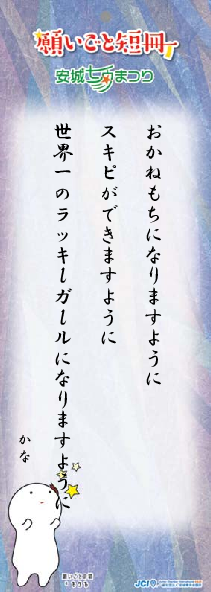 願いごと短冊
安城七夕まつり
おかねもちになりますように
スキピができますように
世界一のラッキーガールになりますように
かな
願いごと短冊
JCI